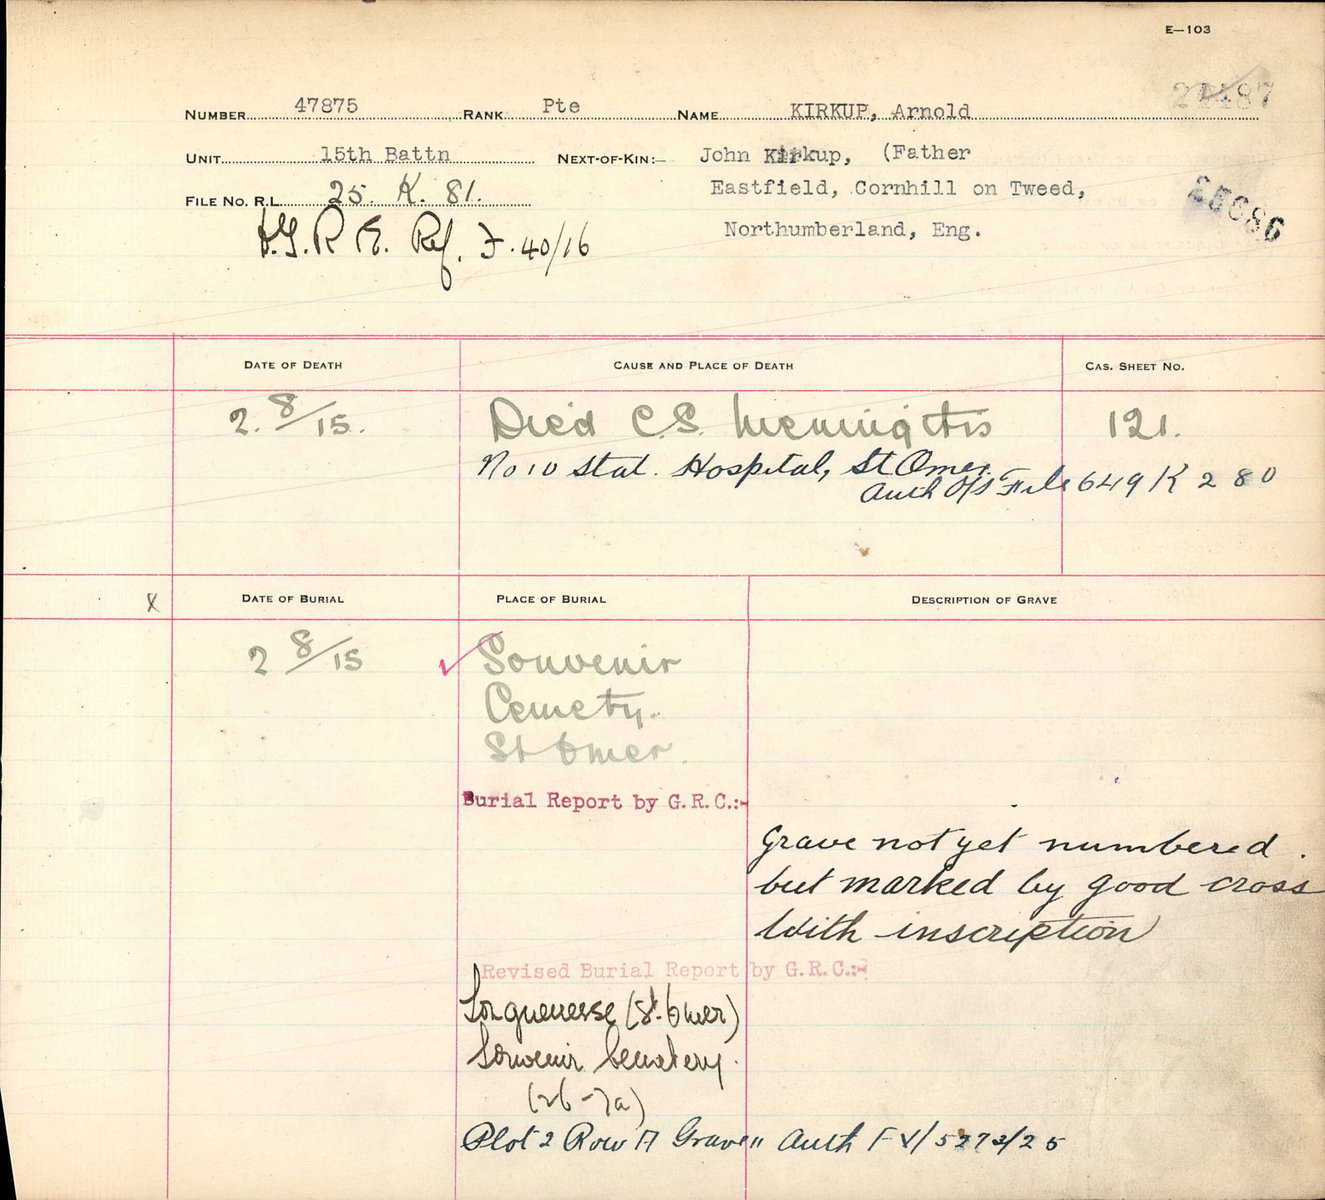 E—103
NUMBER 47875 RANK Pte NAME KIRKUP, Arnold
UNIT 15th Battn NEXT-OF-KIN:— John Kirkup, (Father
Eastfield, Cornhill on Tweed,
Northumberland, Eng.
25686
FILE NO. R.L. 25. K. 81.
Ref. F. 40/16
DATE OF DEATH CAUSE AND PLACE OF DEATH CAS. SHEET NO.
2. 8/15. Died C.S. Meningitis 121.
No 10 Stat. Hospital, St Omer.
Auth O/S File 649 K 280
X DATE OF BURIAL PLACE OF BURIAL DESCRIPTION OF GRAVE
2 8/15 Souvenir
Cemety.
St Omer.
Burial Report by G.R.C.:-
Grave not yet numbered.
but marked by good cross
with inscription
Revised Burial Report by G.R.C.:-
Longuenesse (St. Omer)
Souvenir Cemetery.
Plot 2 Row A Grave 11 Auth